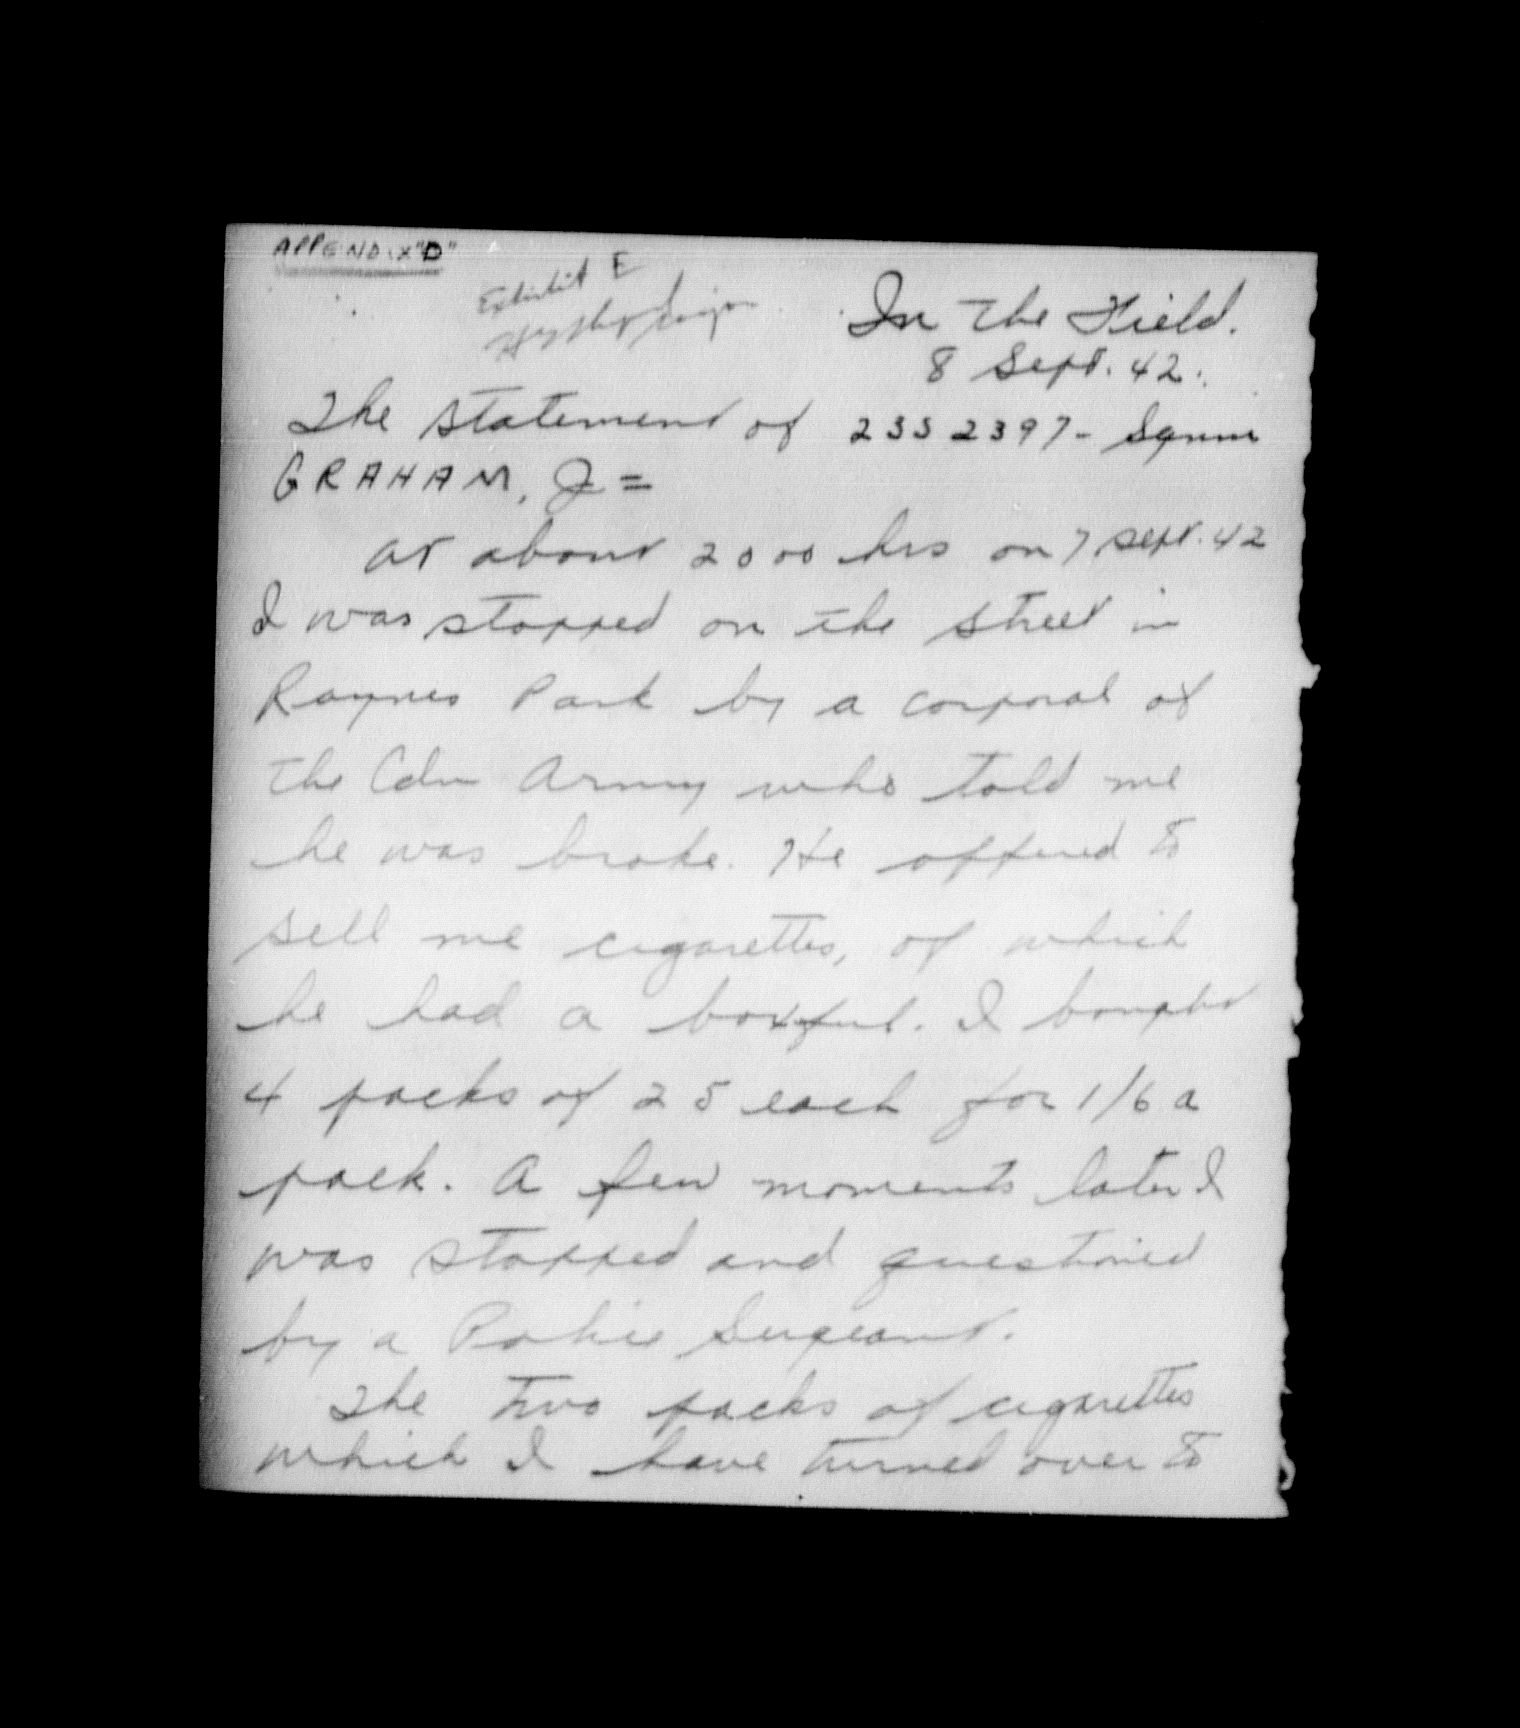 APPENDIX "D"
Exhibit E
In the Field.
8 Sept. 42.
The statement of 2352397 - Sgnm
GRAHAM, J =
At about 2000 hrs on 7 Sept. 42
I was stopped on the street in
Raynes Park by a corporal of
the Cdn Army who told me
he was broke. He offered to
sell me cigarettes, of which
he had a boxful. I bought
4 packs of 25 each for 1/6 a
pack. A few moments later I
was stopped and questioned
by a Police Sergeant.
The two packs of cigarettes
which I have turned over to